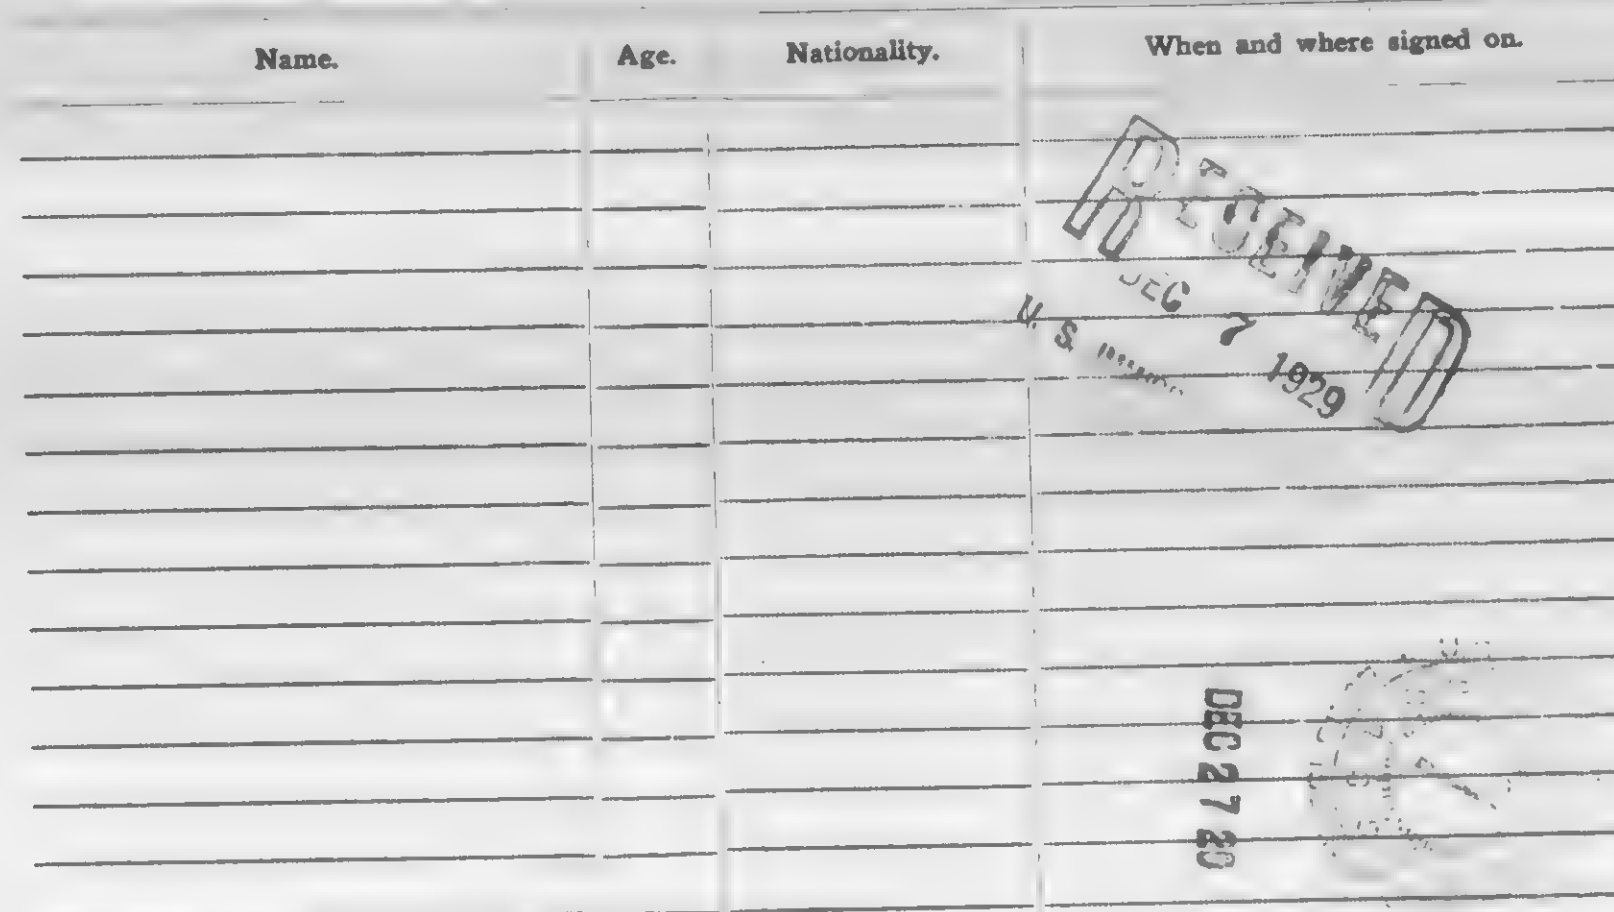 Name. Age. Nationality. When and where signed on.
RECEIVED
DEC 7 1929
U. S.
DEC 27 29